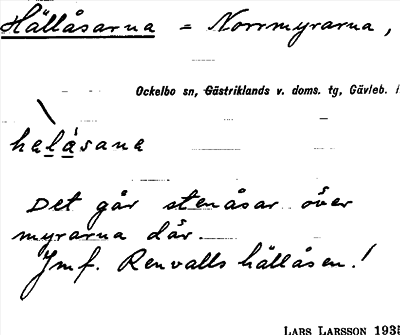 Hällåsarna = Norrmyrarna,
Ockelbo sn, Gästriklands v. doms. tg, Gävleb. l
helåsana
Det går stenåsar över
myrarna där.
Jmf. Renvalls hällåsen!
LARS LARSSON 1935